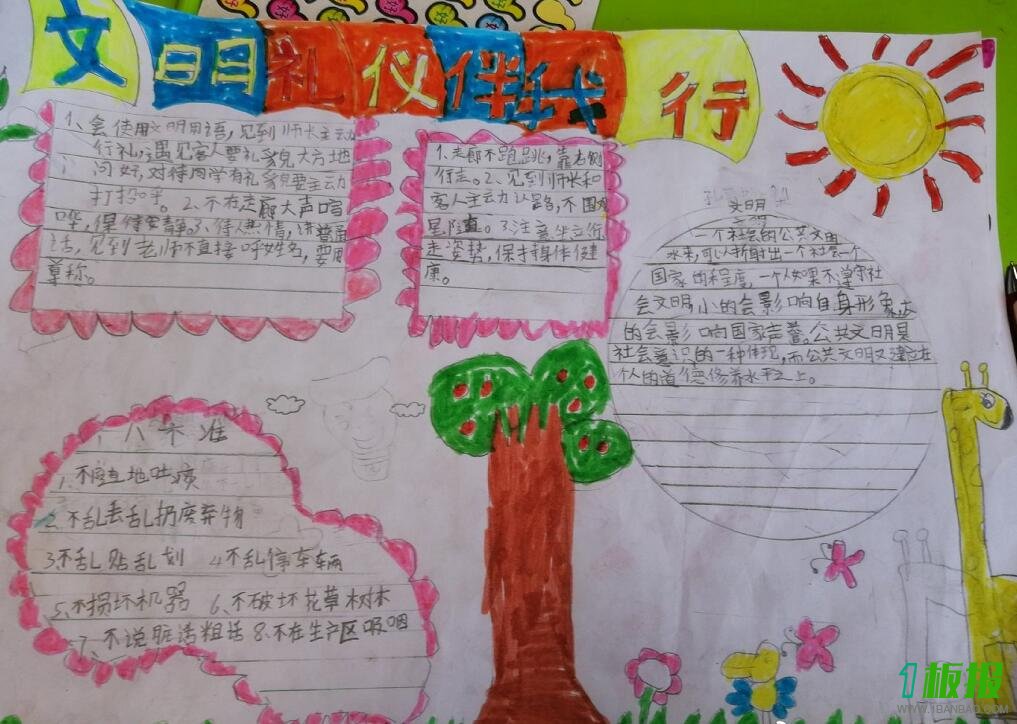 文明礼仪伴我行
1、会使用文明用语，见到师长主动
行礼，遇见客人要礼貌大方地
问好，对待同学有礼貌要主动
打招呼。2、不在走廊大声喧
哗，保持安静。3、待人热情，讲普通
话，见到老师不直接呼姓名，要用
尊称。
1、走廊不跑跳，靠右侧
行走。2、见到师长和
客人主动让路，不围观
尾随。3、注意坐立行
走姿势，保持身体健
康。
文明
一个社会的公共文明
水来，可以折射出一个社会一个
国家的程度，一个人如果不遵守社
会文明，小的会影响自身形象，大
的会影响国家声誉。公共文明是
社会意识的一种体现，而公共文明又建立在
个人的道德修养水平之上。
八不准
1、不随地吐痰
2、不乱丢乱扔废弃物
3、不乱贴乱划 4、不乱停车辆
5、不损坏机器 6、不破坏花草树木
7、不说脏话粗话 8、不在生产区吸烟
1板报
WWW.1BANBAO.COM